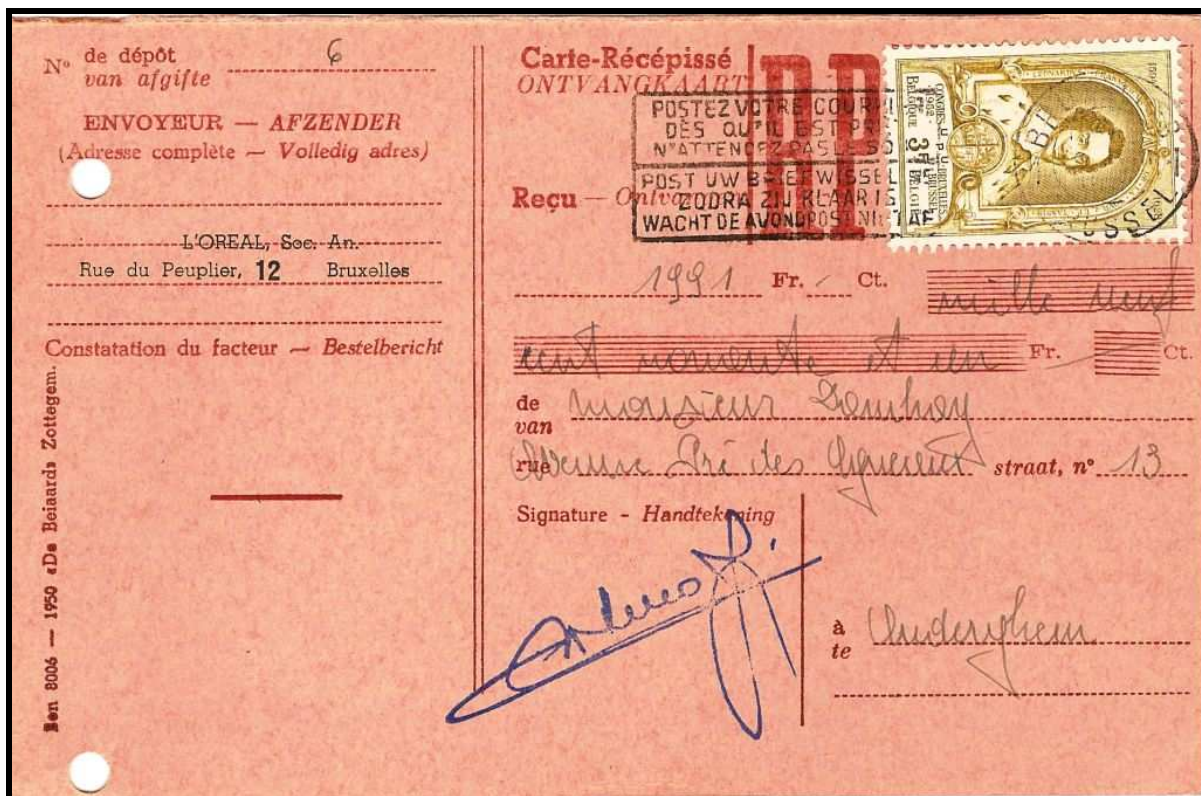 Nº de dépôt
van afgifte 6
ENVOYEUR — AFZENDER
(Adresse complète — Volledig adres)
L'OREAL, Soc. An.
Rue du Peuplier, 12 Bruxelles
Constatation du facteur — Bestelbericht
Bon 8006 — 1950 «De Beiaard» Zottegem.
Carte-Récépissé
ONTVANGKAART
RP
POSTEZ VOTRE
DÈS QU'IL EST
N'ATTENDEZ PAS LE
POST UW BRIEFWISSEL
ZODRA ZIJ KLAAR IS
WACHT DE AVONDPOST NI
CONGRES U.P.U. BRUXELLES
1952 BRUSSEL
BELGIQUE BELGIE
3F
Reçu —
1991 Fr. / Ct. mille neuf
cent nonante et un Fr. — Ct.
de
van Monsieur
rue Avenue Pré des straat, nº 13
Signature - Handtekening
à
te Auderghem